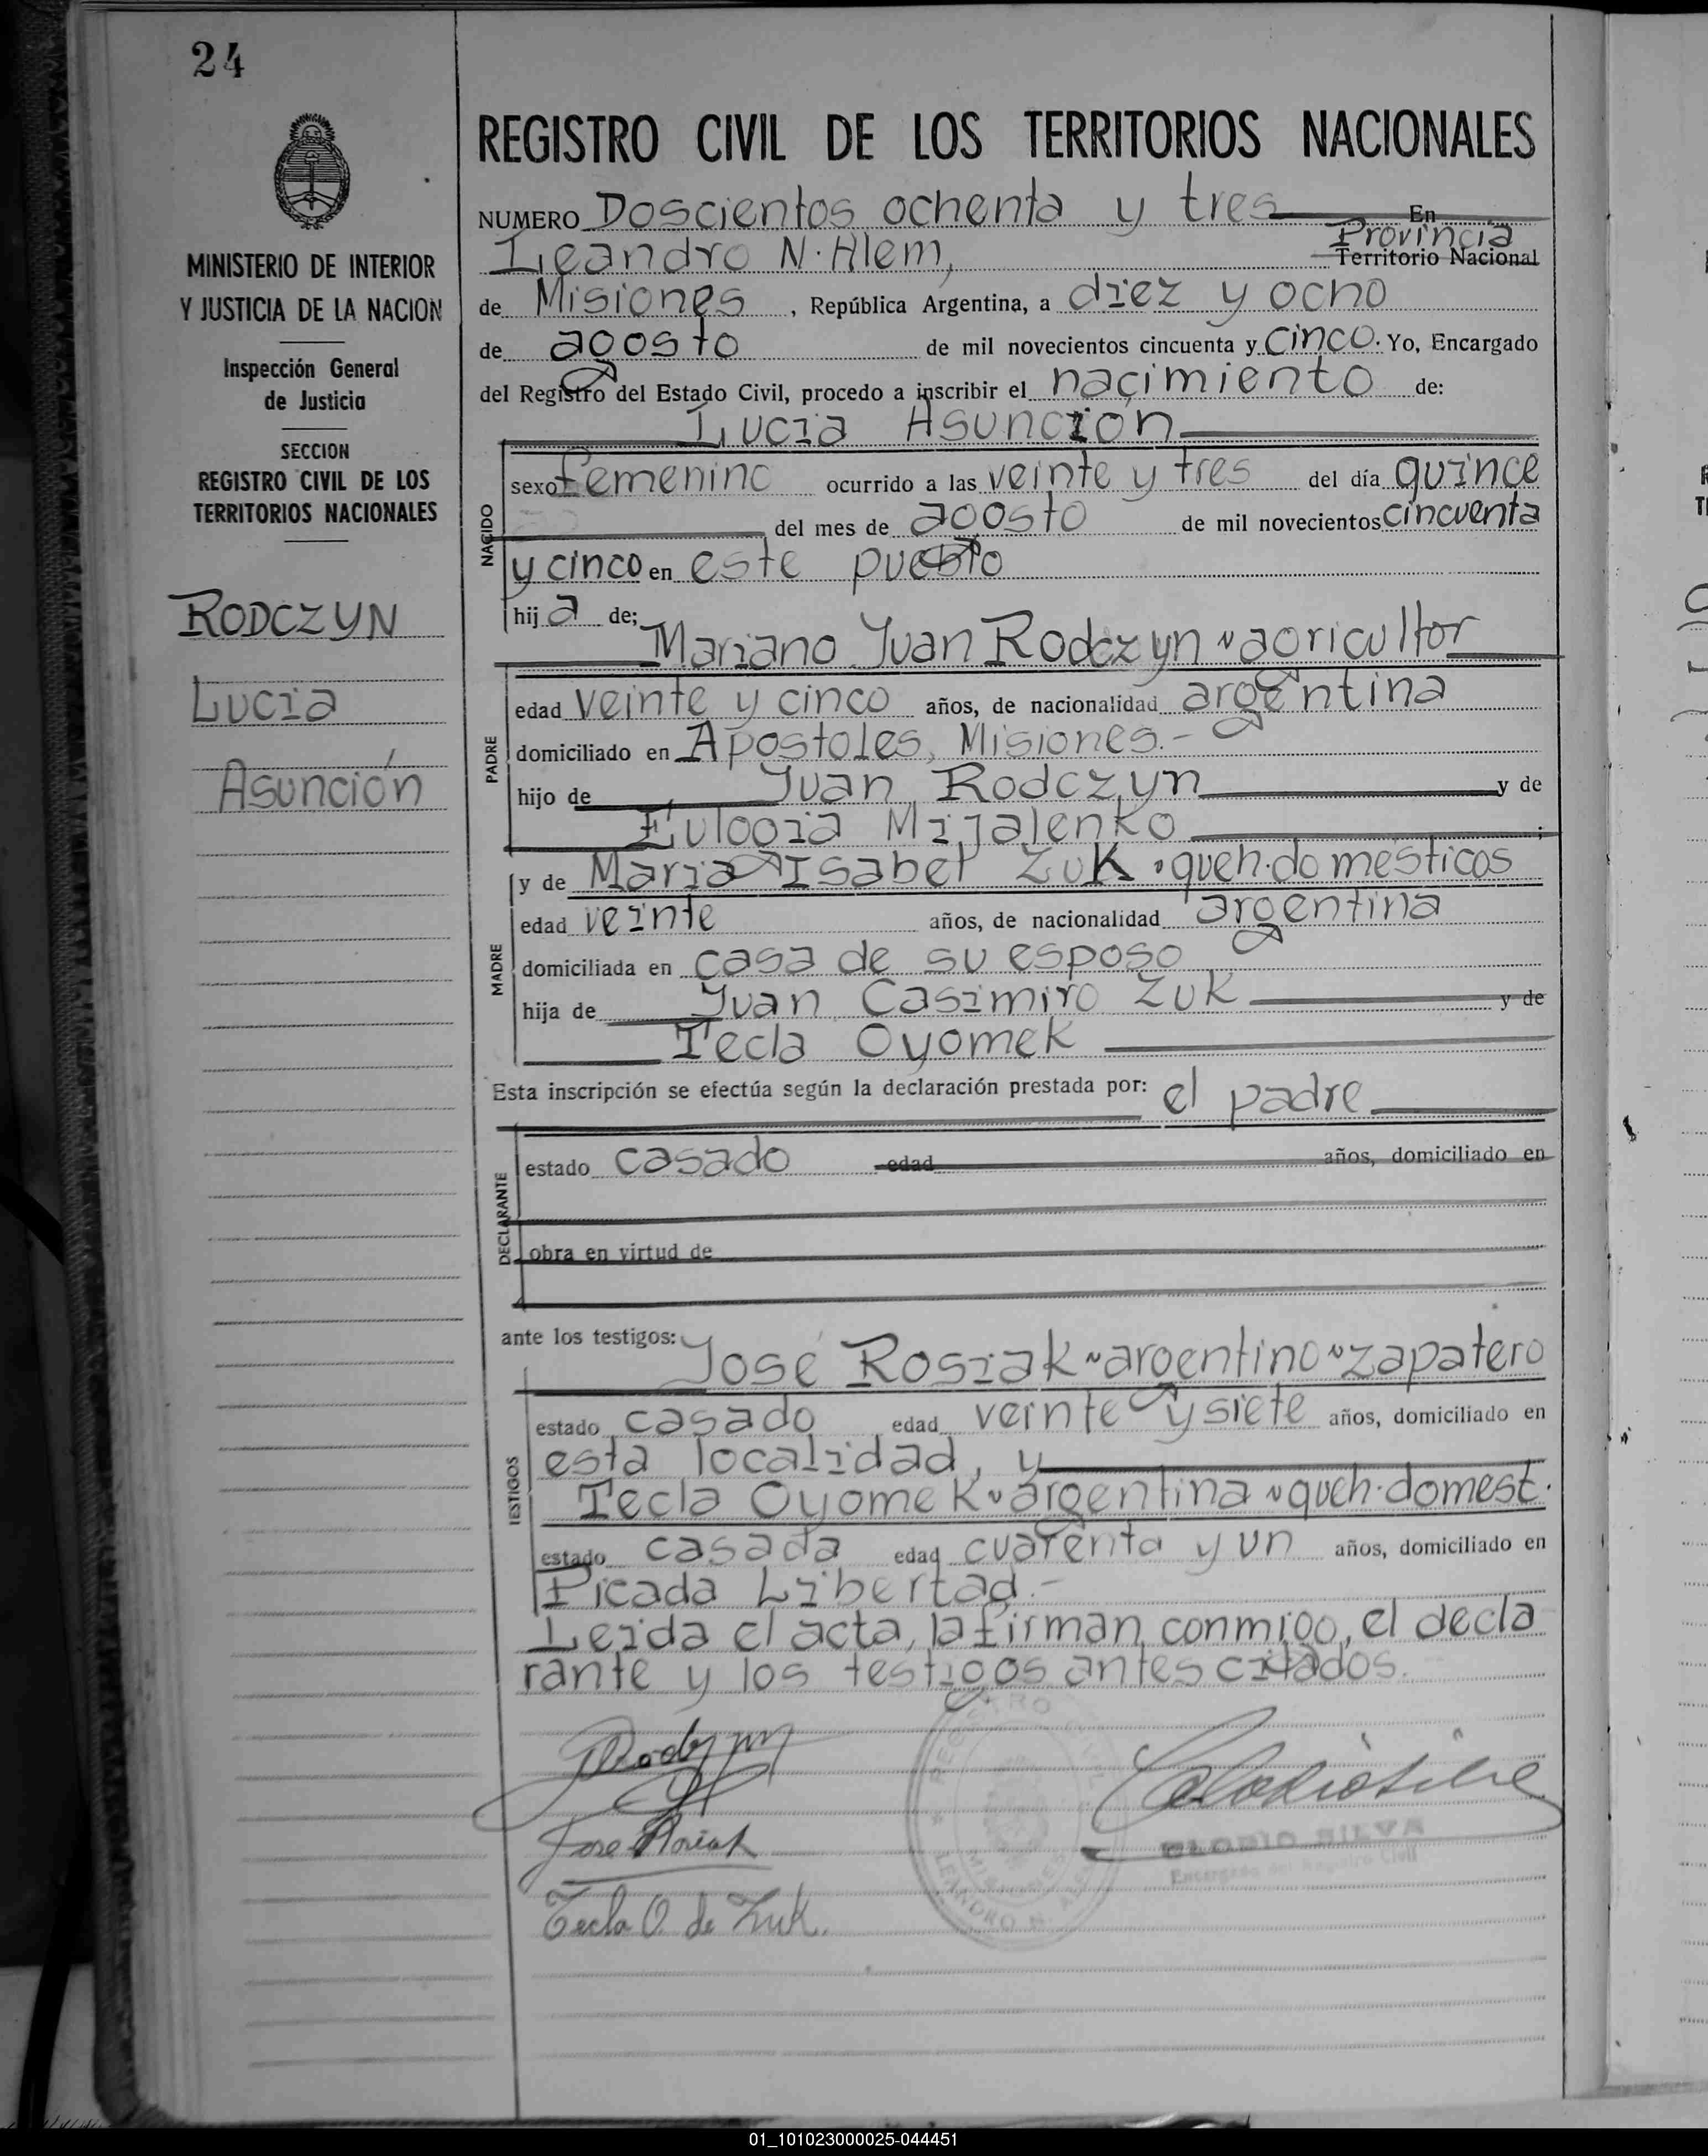 24
MINISTERIO DE INTERIOR
Y JUSTICIA DE LA NACION
Inspección General
de Justicia
SECCION
REGISTRO CIVIL DE LOS
TERRITORIOS NACIONALES
RODCZYN
Lucia
Asunción
REGISTRO CIVIL DE LOS TERRITORIOS NACIONALES
NUMERO Doscientos ochenta y tres En
Leandro N. Alem, Provincia
Territorio Nacional
de Misiones , República Argentina, a diez y ocho
de agosto de mil novecientos cincuenta y cinco. Yo, Encargado
del Registro del Estado Civil, procedo a inscribir el nacimiento de:
Lucia Asunción
NACIDO
sexo femenino ocurrido a las veinte y tres del día quince
del mes de agosto de mil novecientos cincuenta
y cinco en este pueblo
hij a de;
Mariano Juan Rodczyn ~ agricultor
PADRE
edad veinte y cinco años, de nacionalidad argentina
domiciliado en Apostoles, Misiones.-
hijo de Juan Rodczyn y de
Eulogia Mijalenko ;
MADRE
y de Maria Isabel Zuk · queh. domesticos
edad veinte años, de nacionalidad argentina
domiciliada en casa de su esposo
hija de Juan Casimiro Zuk y de
Tecla Oyomek
Esta inscripción se efectúa según la declaración prestada por: el padre
DECLARANTE
estado casado edad años, domiciliado en
obra en virtud de
ante los testigos:
José Rosiak ~ argentino ~ zapatero
TESTIGOS
estado casado edad veinte y siete años, domiciliado en
esta localidad, y
Tecla Oyomek ~ argentina ~ queh. domest.
estado casada edad cuarenta y un años, domiciliado en
Picada Libertad.-
Leida el acta, la firman conmigo, el decla
rante y los testigos antes citados.
Jose Rosiak
Tecla O. de Zuk.
REGISTRO
MISIONES
LEANDRO N. ALEM
CLODIO SILVA
Encargado del Registro Civil
01_101023000025-044451